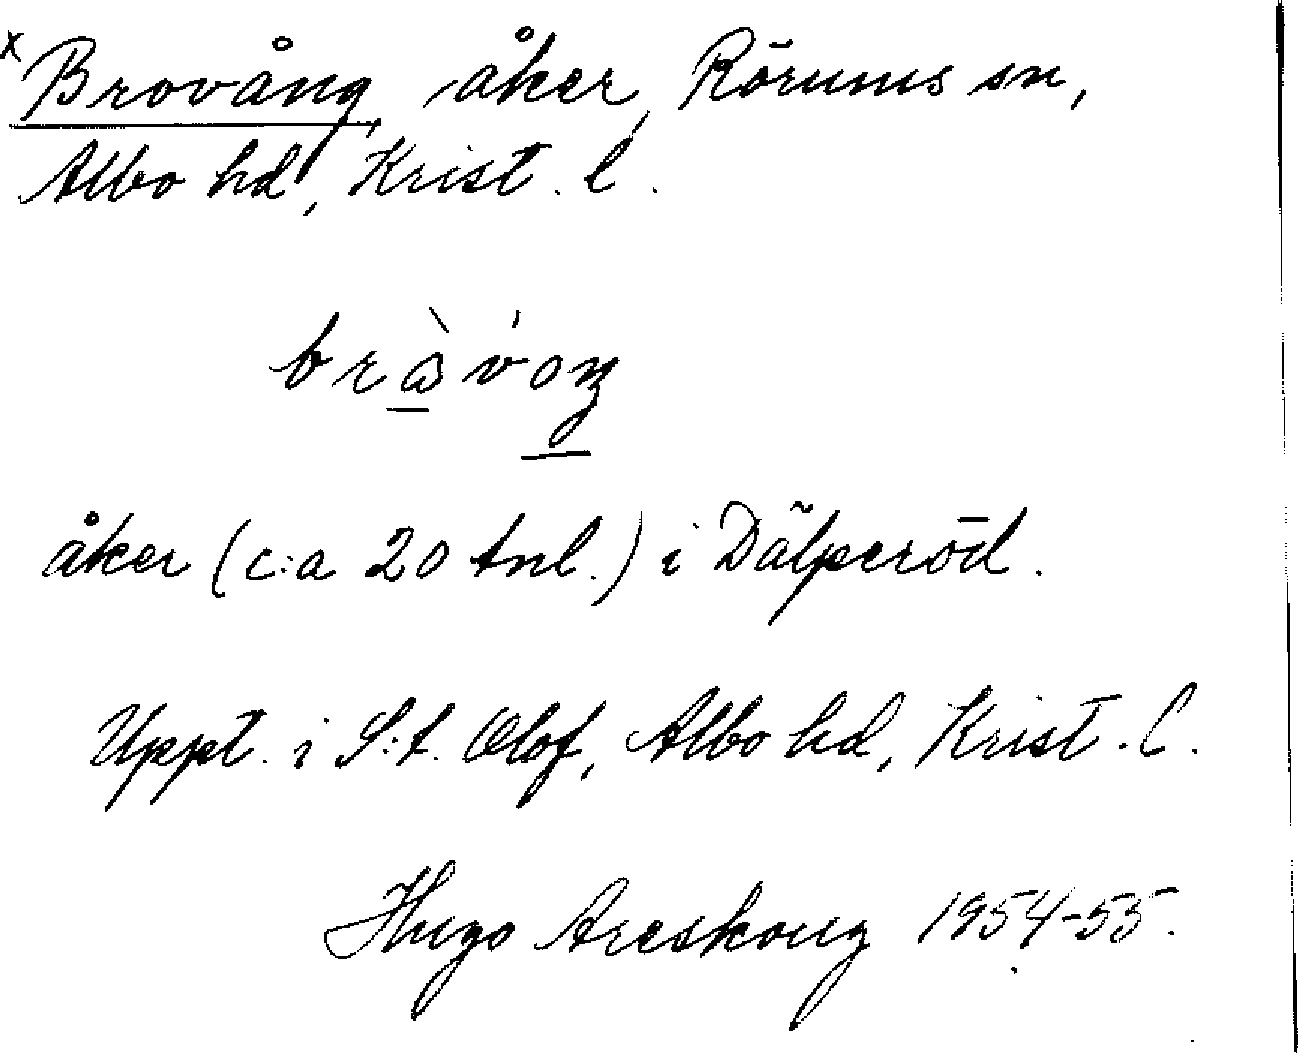 x Brovång, åker, Rörums sn,
Albo hd, Krist. l.
åker (c:a 20 tnl.) i Dälperöd.
Uppt. i S:t. Olof, Albo hd, Krist. l.
Hugo Areskoug 1954-55.